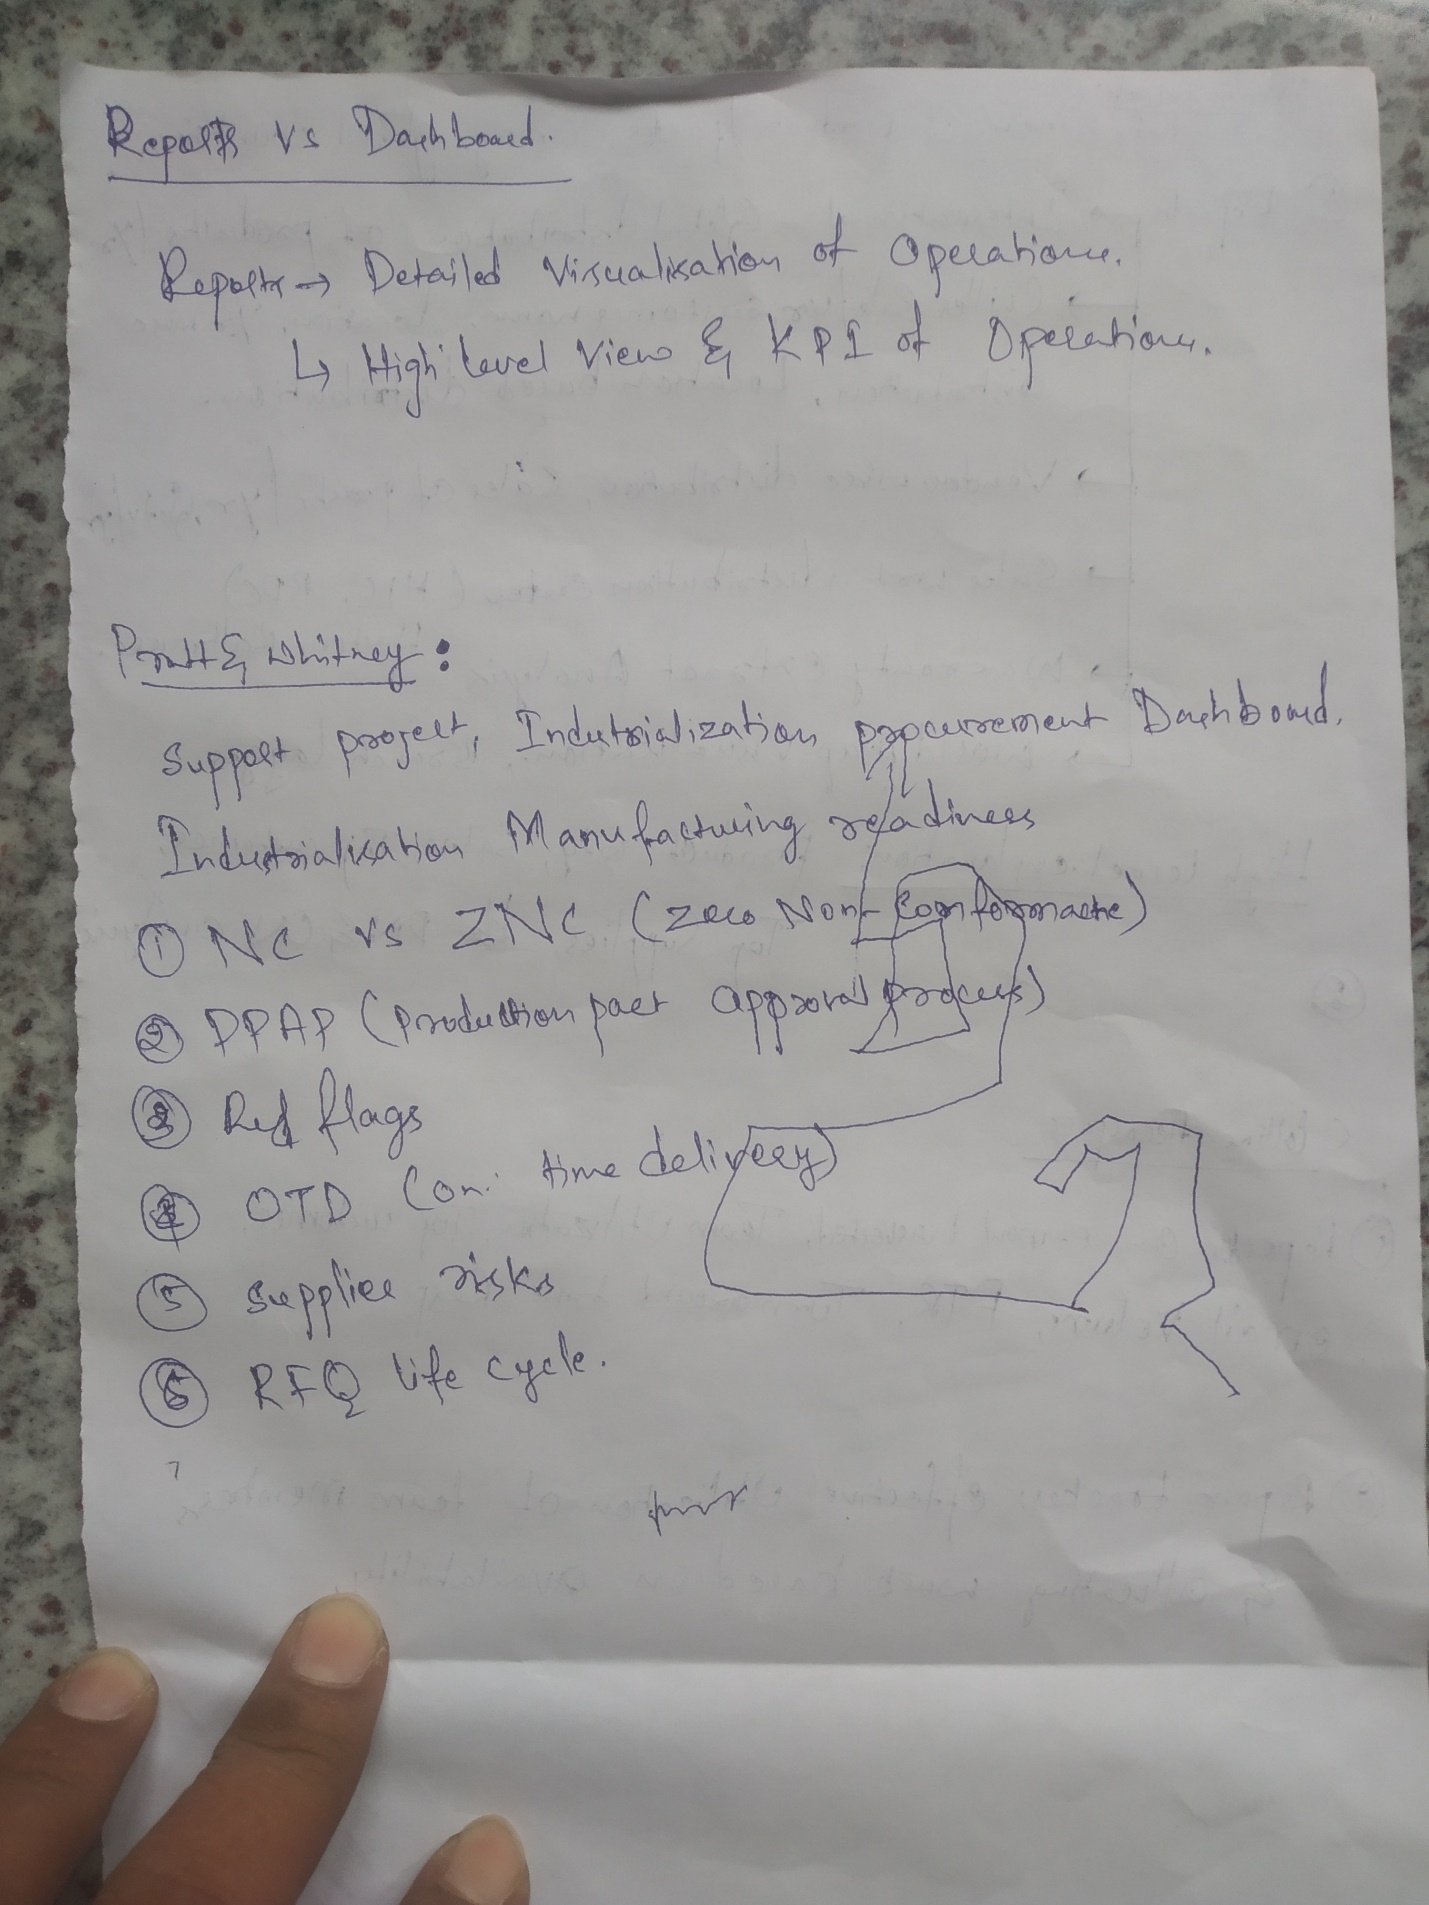 Reports vs Dashboard.
Reports → Detailed Visualisation of Operations.
↳ High level View & KPI of Operations.
Pratt & Whitney:
Support project, Indutrialization procurement Dashboard.
Industrialisation Manufacturing readiness
① NC vs ZNC (Zero Non-Conformance)
② PPAP (Production part approval process)
③ Red flags
④ OTD (on time delivery)
⑤ Supplier risks
⑥ RFQ life cycle.
7